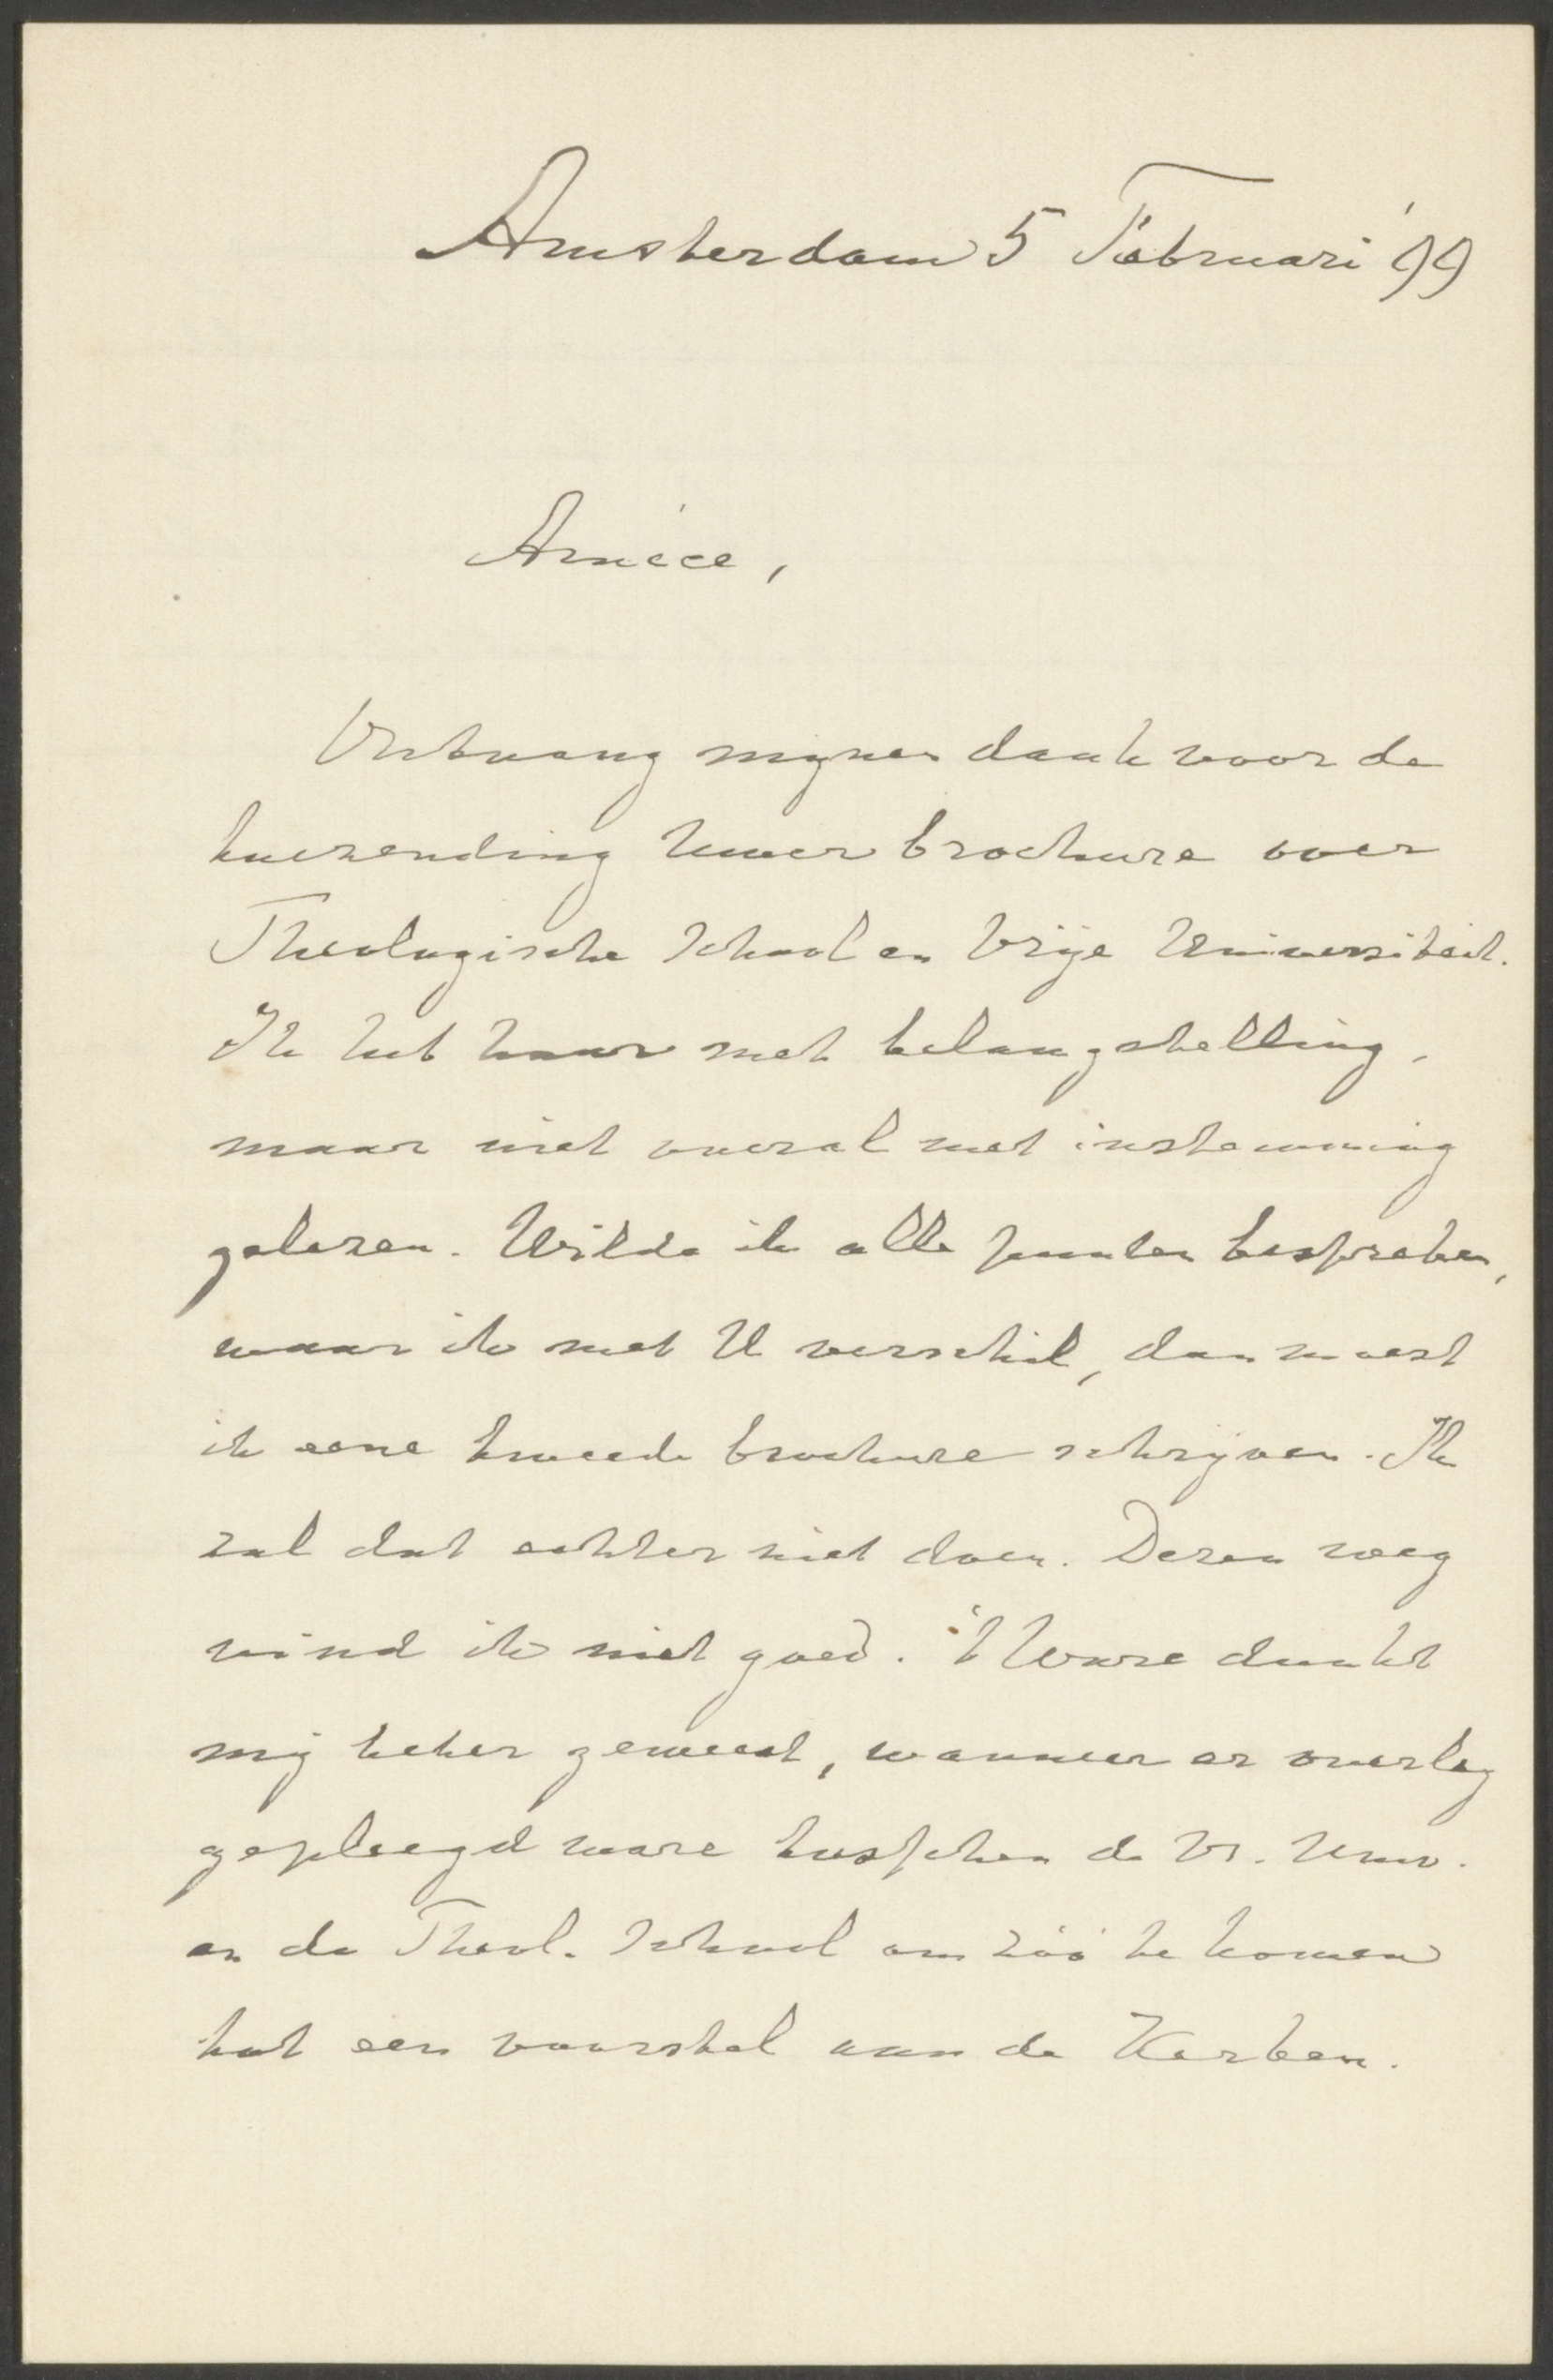 Amsterdam 5 Februari '99
Amice,
Ontvang mijnen dank voor de
toezending Uwer brochure over
Theologische School en Vrije Universiteit.
Ik heb haar met belangstelling,
maar niet overal met instemming
gelezen. Wilde ik alle punten bespreken,
waar ik met U verschil, dan moest
ik eene tweede brochure schrijven. Ik
zal dat echter niet doen. Dezen weg
vind ik niet goed. 't Ware dunkt
mij beter geweest, wanneer er overleg
gepleegd ware tusschen de Vr. Univ.
en de Theol. School om zóó te komen
tot een voorstel aan de Kerken.